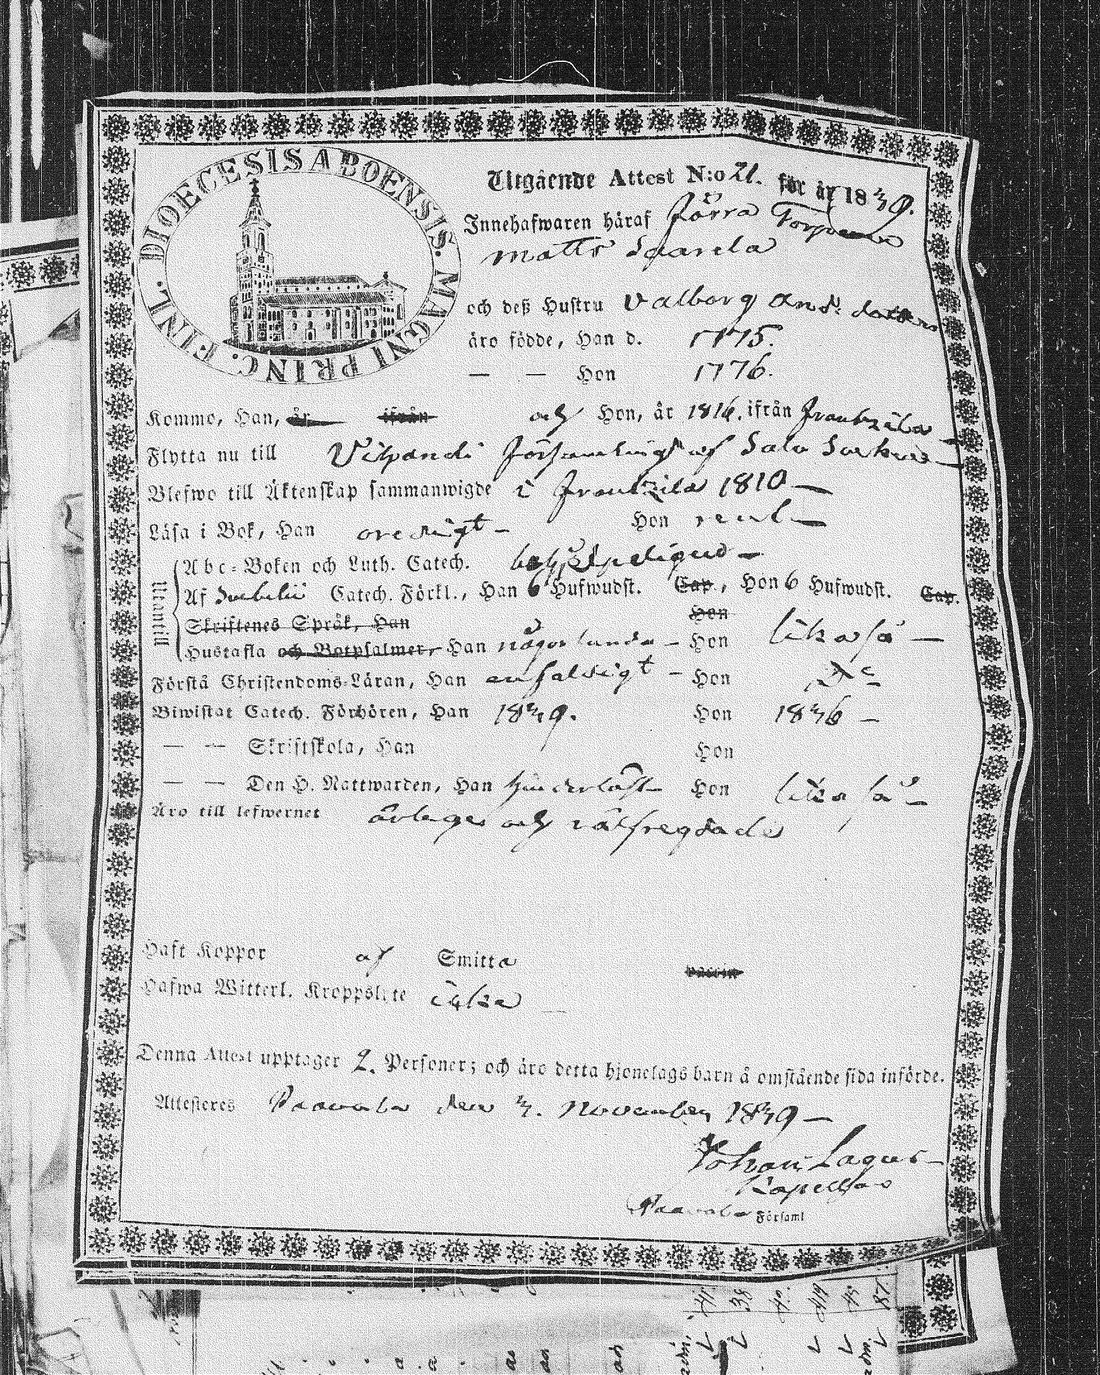 DIOECESIS ABOENSIS. MAGNI PRINC. FINL.
Utgående Attest N:o 21. för år 1839.
Innehafwaren häraf förra Torparen
Matts Saarela
och deß Hustru Valborg And: dotter
äro födde, Han d. 1775.
— — Hon 1776.
Kommo, Han, år ifrån och Hon, år 1816. ifrån Frantzila
Flytta nu till Församling af Salo
Blefwo till Äktenskap sammanwigde i Frantzila 1810 —
Läsa i Bok, Han oredigt — Hon rent —
Utantill
Abc-Boken och Luth. Catech. behjelpeligen —
Af Svebelii Catech. Förkl., Han 6 Hufwudst. Cap., Hon 6 Hufwudst. Cap.
Skriftenes Språk, Han Hon
Hustafla och Botpsalmer, Han någorlunda — Hon lika så —
Förstå Christendoms-Läran, Han enfaldigt — Hon Do
Biwistat Catech. Förhören, Han 1839. Hon 1836 —
— — Skriftskola, Han Hon
— — Den H. Nattwarden, Han hinderlöst Hon lika så —
Äro till lefwernet ärliga och välfrejdade
Haft Koppor af Smitta
Hafwa Witterl. Kroppslyte icke
Denna Attest upptager 2. Personer; och äro detta hjonelags barn å omstående sida införde.
Attesteres Paavola den November 1839 —
Johan Lagus
Kapellan
Paavola Församl